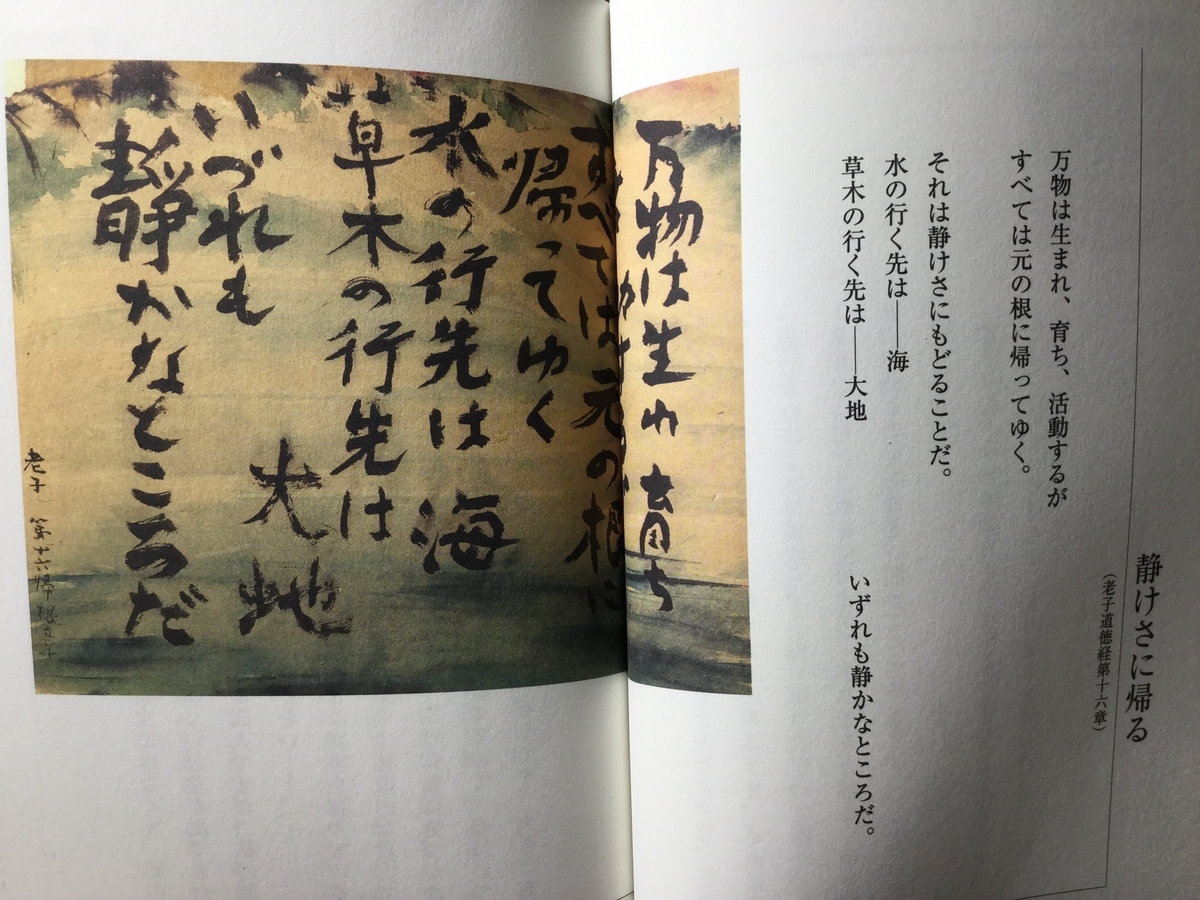 静けさに帰る
(老子道徳経第十六章)
万物は生まれ、育ち、活動するが
すべては元の根に帰ってゆく。
それは静けさにもどることだ。
水の行く先は——海
草木の行く先は——大地
いずれも静かなところだ。
万物は生れ育ち
すべては元の根に
帰ってゆく
水の行先は海
草木の行先は
大地
いづれも
静かなところだ
老子 第十六帰根